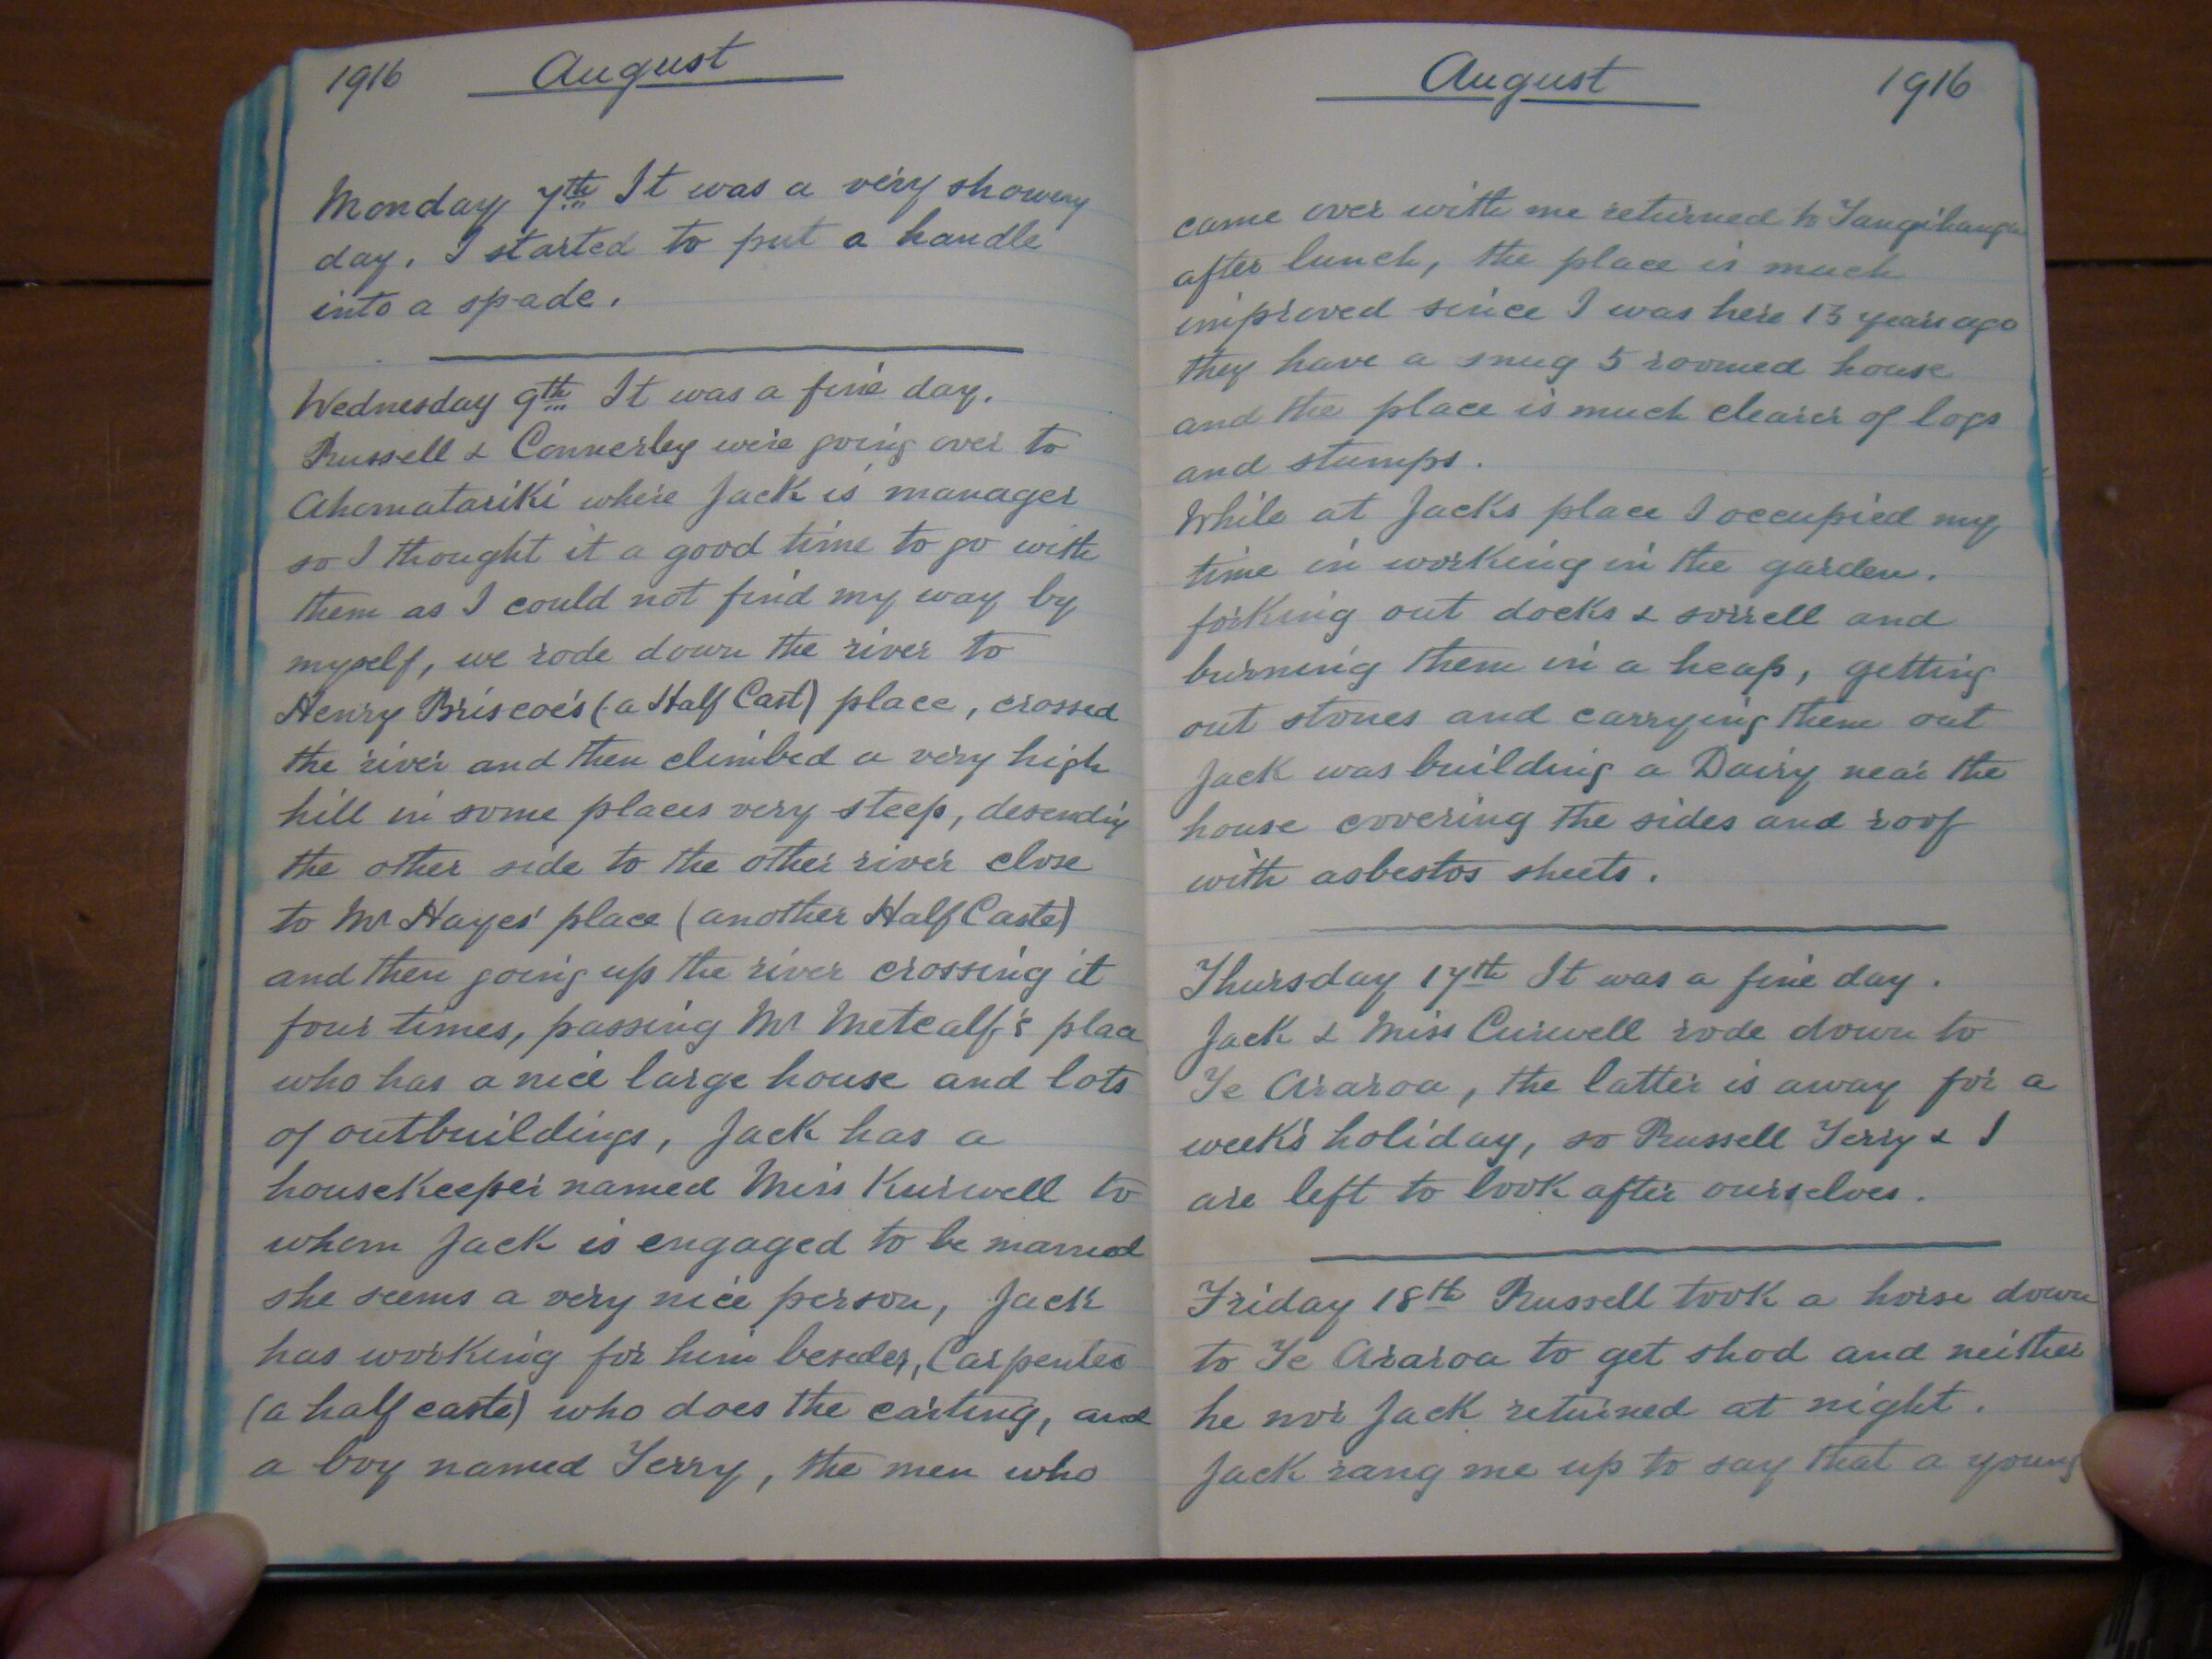 1916 August
Monday 7th It was a very showery
day. I started to put a handle
into a spade.
Wednesday 9th It was a fine day.
Russell & Connerley were going over to
Ahomatariki where Jack is manager
so I thought it a good time to go with
them as I could not find my way by
myself, we rode down the river to
Henry Briscoe's (a Half Cast) place, crossed
the river and then climbed a very high
hill in some places very steep, desending
the other side to the other river close
to Mr Hayes' place (another Half Caste)
and then going up the river crossing it
four times, passing Mr Metcalf's place
who has a nice large house and lots
of outbuildings, Jack has a
housekeeper named Miss Kurwell to
whom Jack is engaged to be married
she seems a very nice person, Jack
has working for him besides, Carpenter
(a half caste) who does the carting, and
a boy named Terry, the men who
August 1916
came over with me returned to Tangihanga
after lunch, the place is much
improved since I was here 13 years ago
they have a snug 5 roomed house
and the place is much clearer of logs
and stumps.
While at Jacks place I occupied my
time in working in the garden.
forking out docks & sorrell and
burning them in a heap, getting
out stones and carrying them out
Jack was building a Dairy near the
house covering the sides and roof
with asbestos sheets.
Thursday 17th It was a fine day.
Jack & Miss Curwell rode down to
Te Araroa, the latter is away for a
week's holiday, so Russell Terry & I
are left to look after ourselves.
Friday 18th Russell took a horse down
to Te Araroa to get shod and neither
he nor Jack returned at night.
Jack rang me up to say that a young